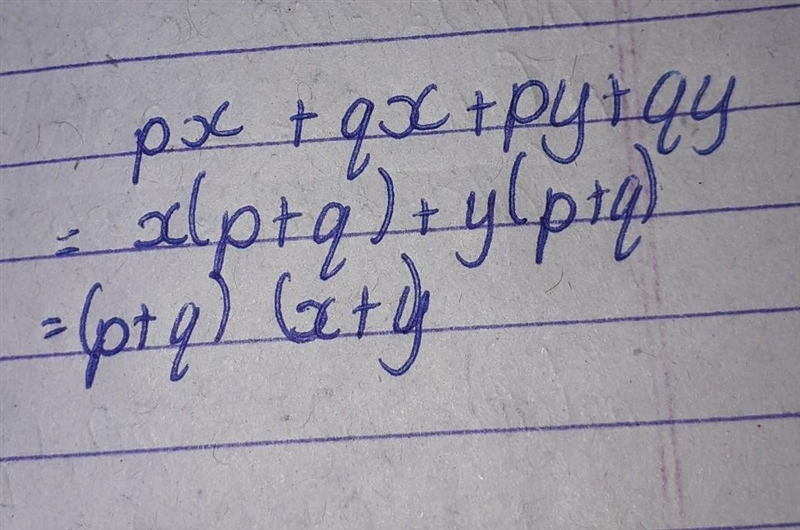 px + qx + py + qy
= x(p+q) + y(p+q)
= (p+q) (x+y)